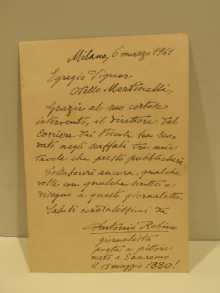 Milano, 6 marzo 1961
Egregio Signor
Otello Martinelli,
Grazie al suo cortese
intervento, il direttore del
Corriere dei Piccoli ha
negli scaffali tre mie
tavole che presto pubblicherà
ancora, qualche
volta con qualche
in questo giornaletto.
Saluti cordialissimi di
Antonio Rubino
giornalista
poeta e pittore
nato a Sanremo
il 15 maggio 1880!